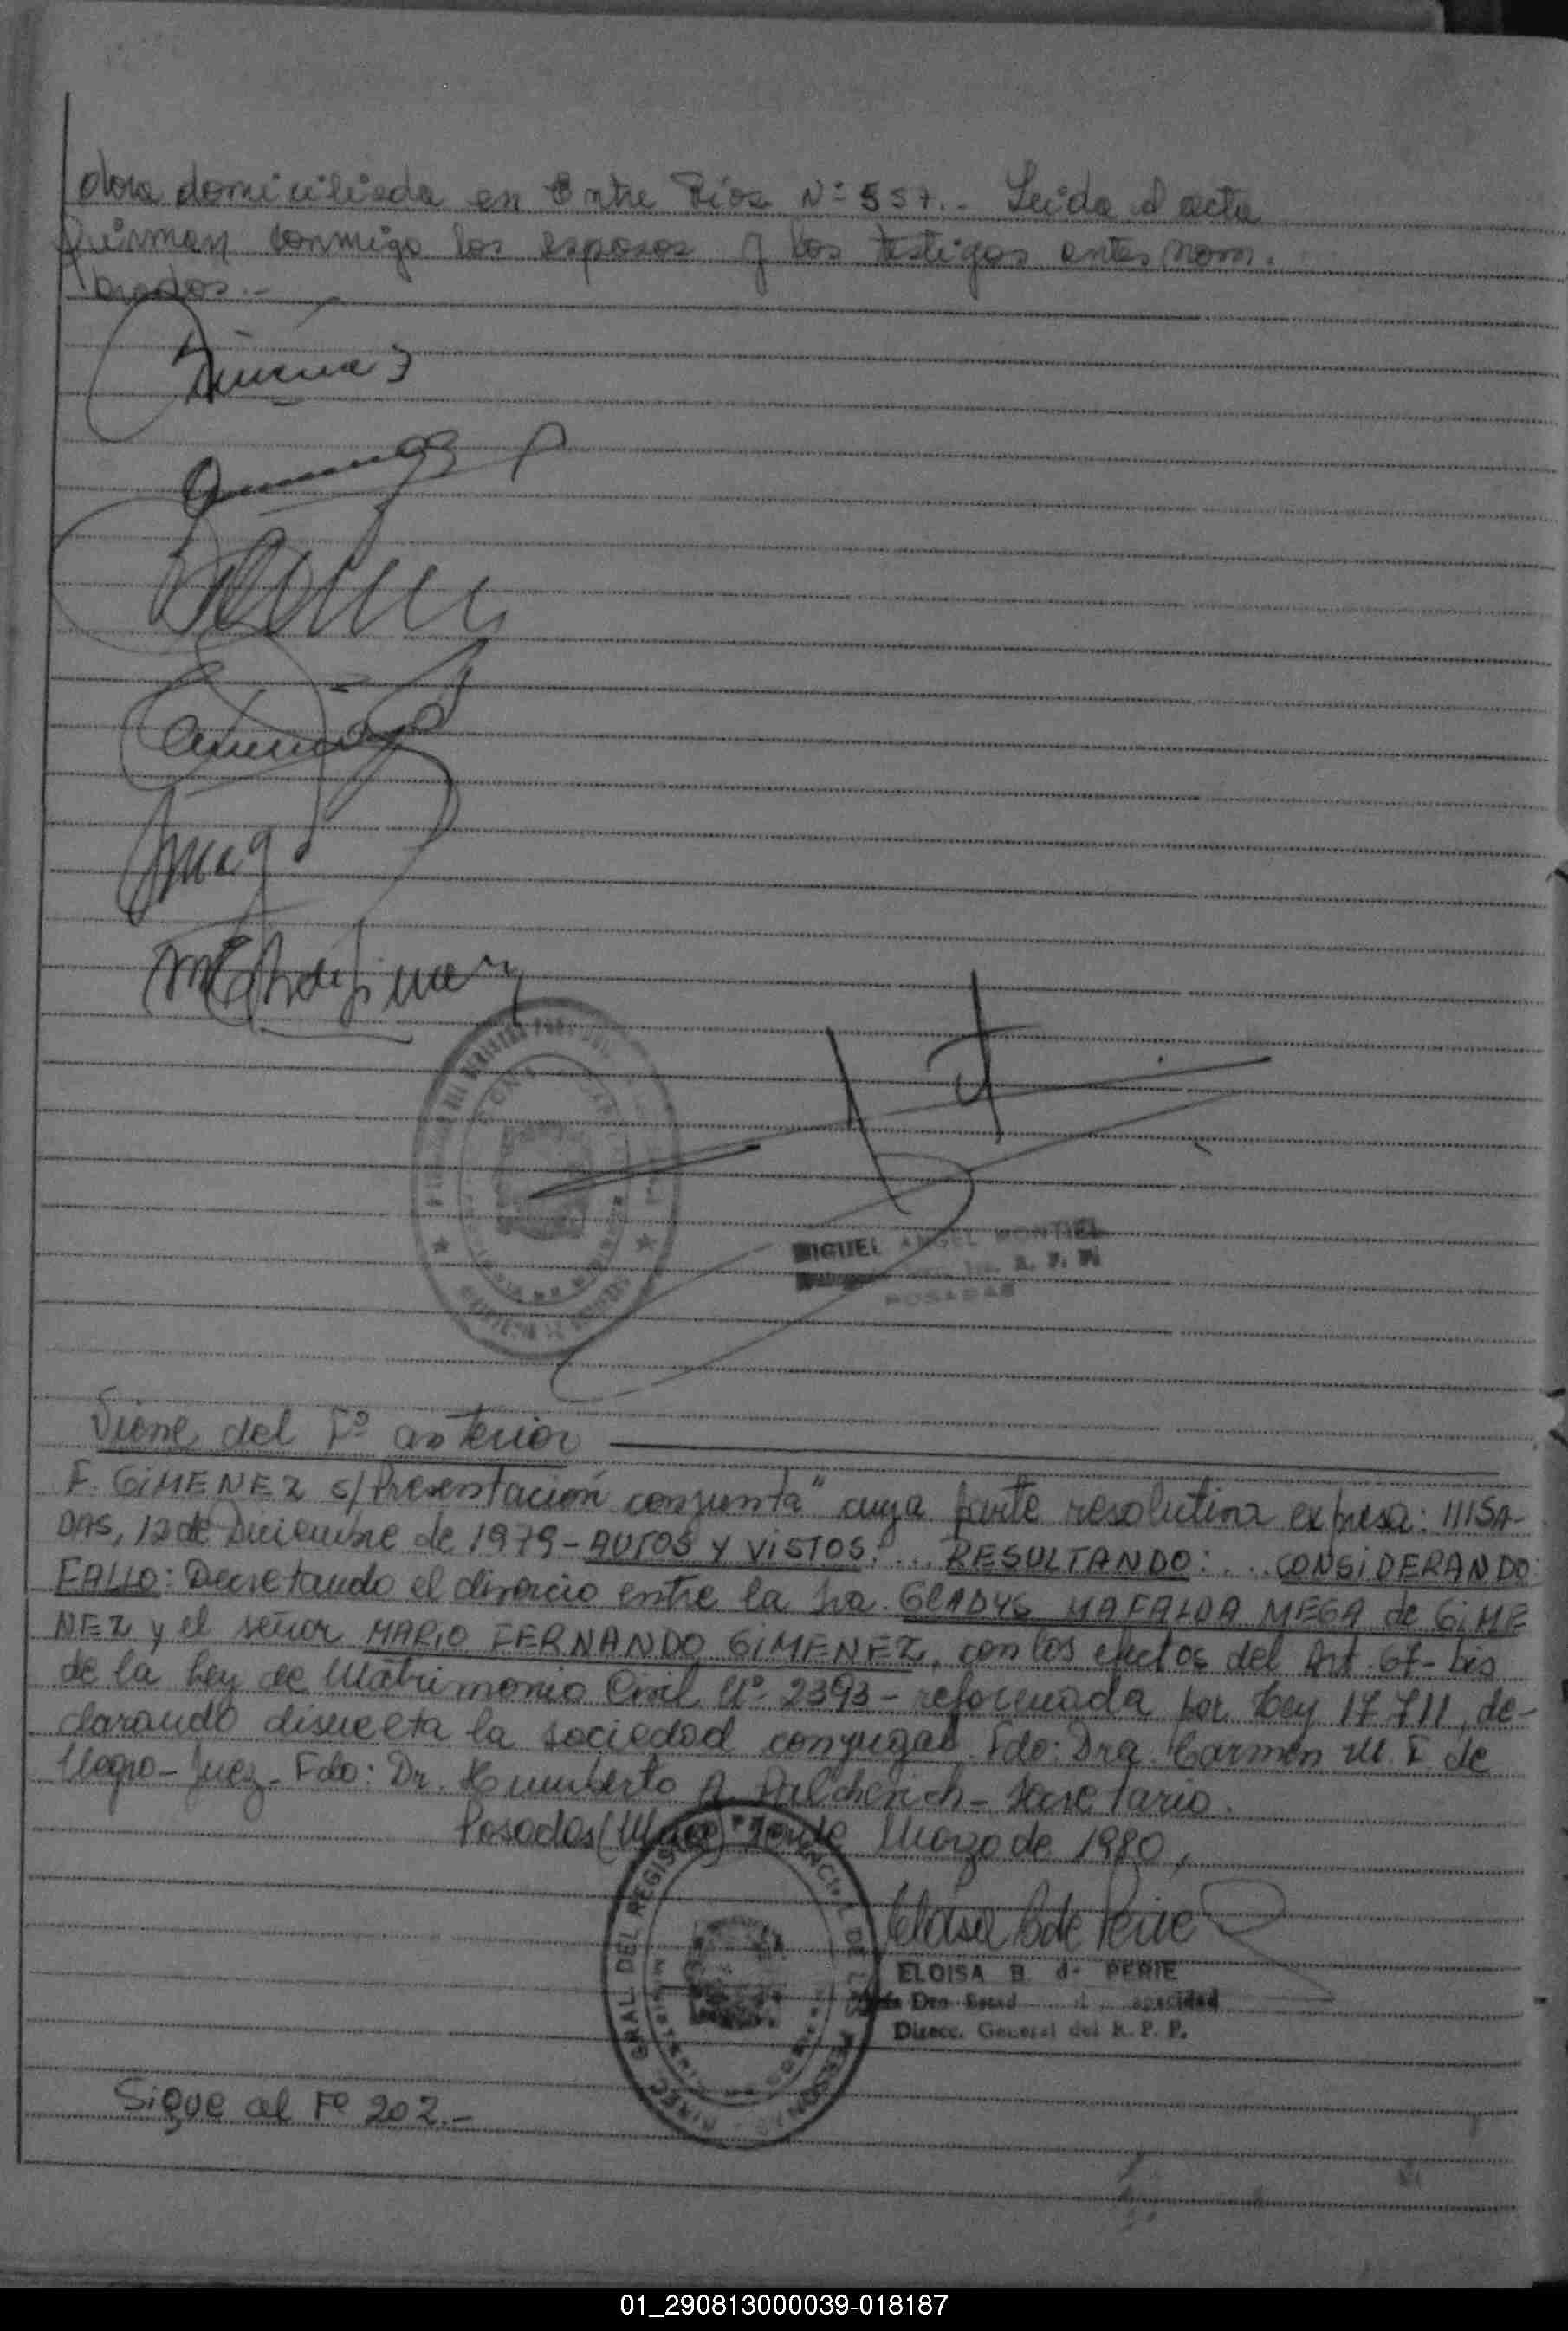 dora domiciliada en Entre Ríos Nº 557.- Leída el acta
firman conmigo los esposos y los testigos antes nom.
brados.-
MIGUEL ANGEL MONTIEL
R. P. P.
POSADAS
Viene del Fº anterior
F. GIMENEZ s/Presentación conjunta" cuya parte resolutiva expresa: ///SA-
DAS, 12 de Diciembre de 1979 - AUTOS Y VISTOS:... RESULTANDO:... CONSIDERANDO:
FALLO: Decretando el divorcio entre la Sra. GLADYS MAFALDA MEGA de GIME
NEZ y el señor MARIO FERNANDO GIMENEZ, con los efectos del Art. 67- bis
de la Ley de Matrimonio Civil Nº 2393 - reformada por Ley 17.711, de-
clarando disuelta la sociedad conyugal. Fdo: Dra. Carmen M. F. de
Negro - Juez - Fdo: Dr. Humberto A. - Secretario.
Posadas (Mnes) de Marzo de 1980,
DIREC. GRAL DEL REGISTRO PROVINCIAL DE LAS PERSONAS
ELOISA B. de PERIE
Direcc. General del R. P. P.
Sigue al Fº 202.-
01_290813000039-018187